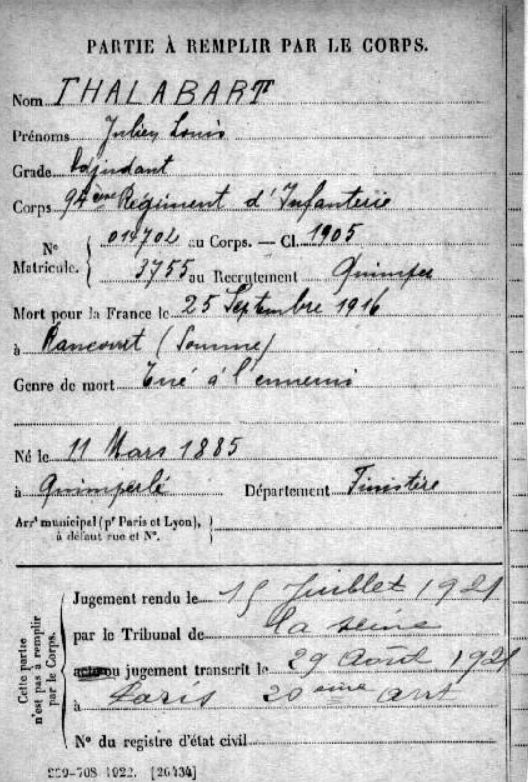 PARTIE À REMPLIR PAR LE CORPS.
Nom THALABART
Prénoms Julien Louis
Grade Adjudant
Corps 94ème Régiment d'Infanterie
N° Matricule. { 014702 au Corps. — Cl. 1905
3755 au Recrutement Quimper
Mort pour la France le 25 Septembre 1916
à Rancourt (Somme)
Genre de mort Tué à l'ennemi
Né le 11 Mars 1885
à Quimperlé Département Finistère
Arrt municipal (pr Paris et Lyon),
à défaut rue et N°.
Cette partie n'est pas à remplir par le Corps.
Jugement rendu le 15 Juillet 1921
par le Tribunal de la Seine
acte ou jugement transcrit le 29 Août 1921
à Paris 20ème arrt
N° du registre d'état civil
-708 1922. [26434]